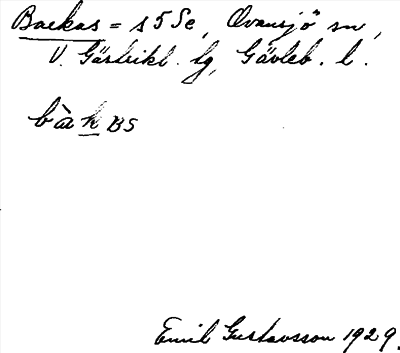 Backas = s 5 Se, Ovansjö sn,
V. Gästrikl. tg, Gävleb. l.
bàkBS
Emil Gustavsson 1929.